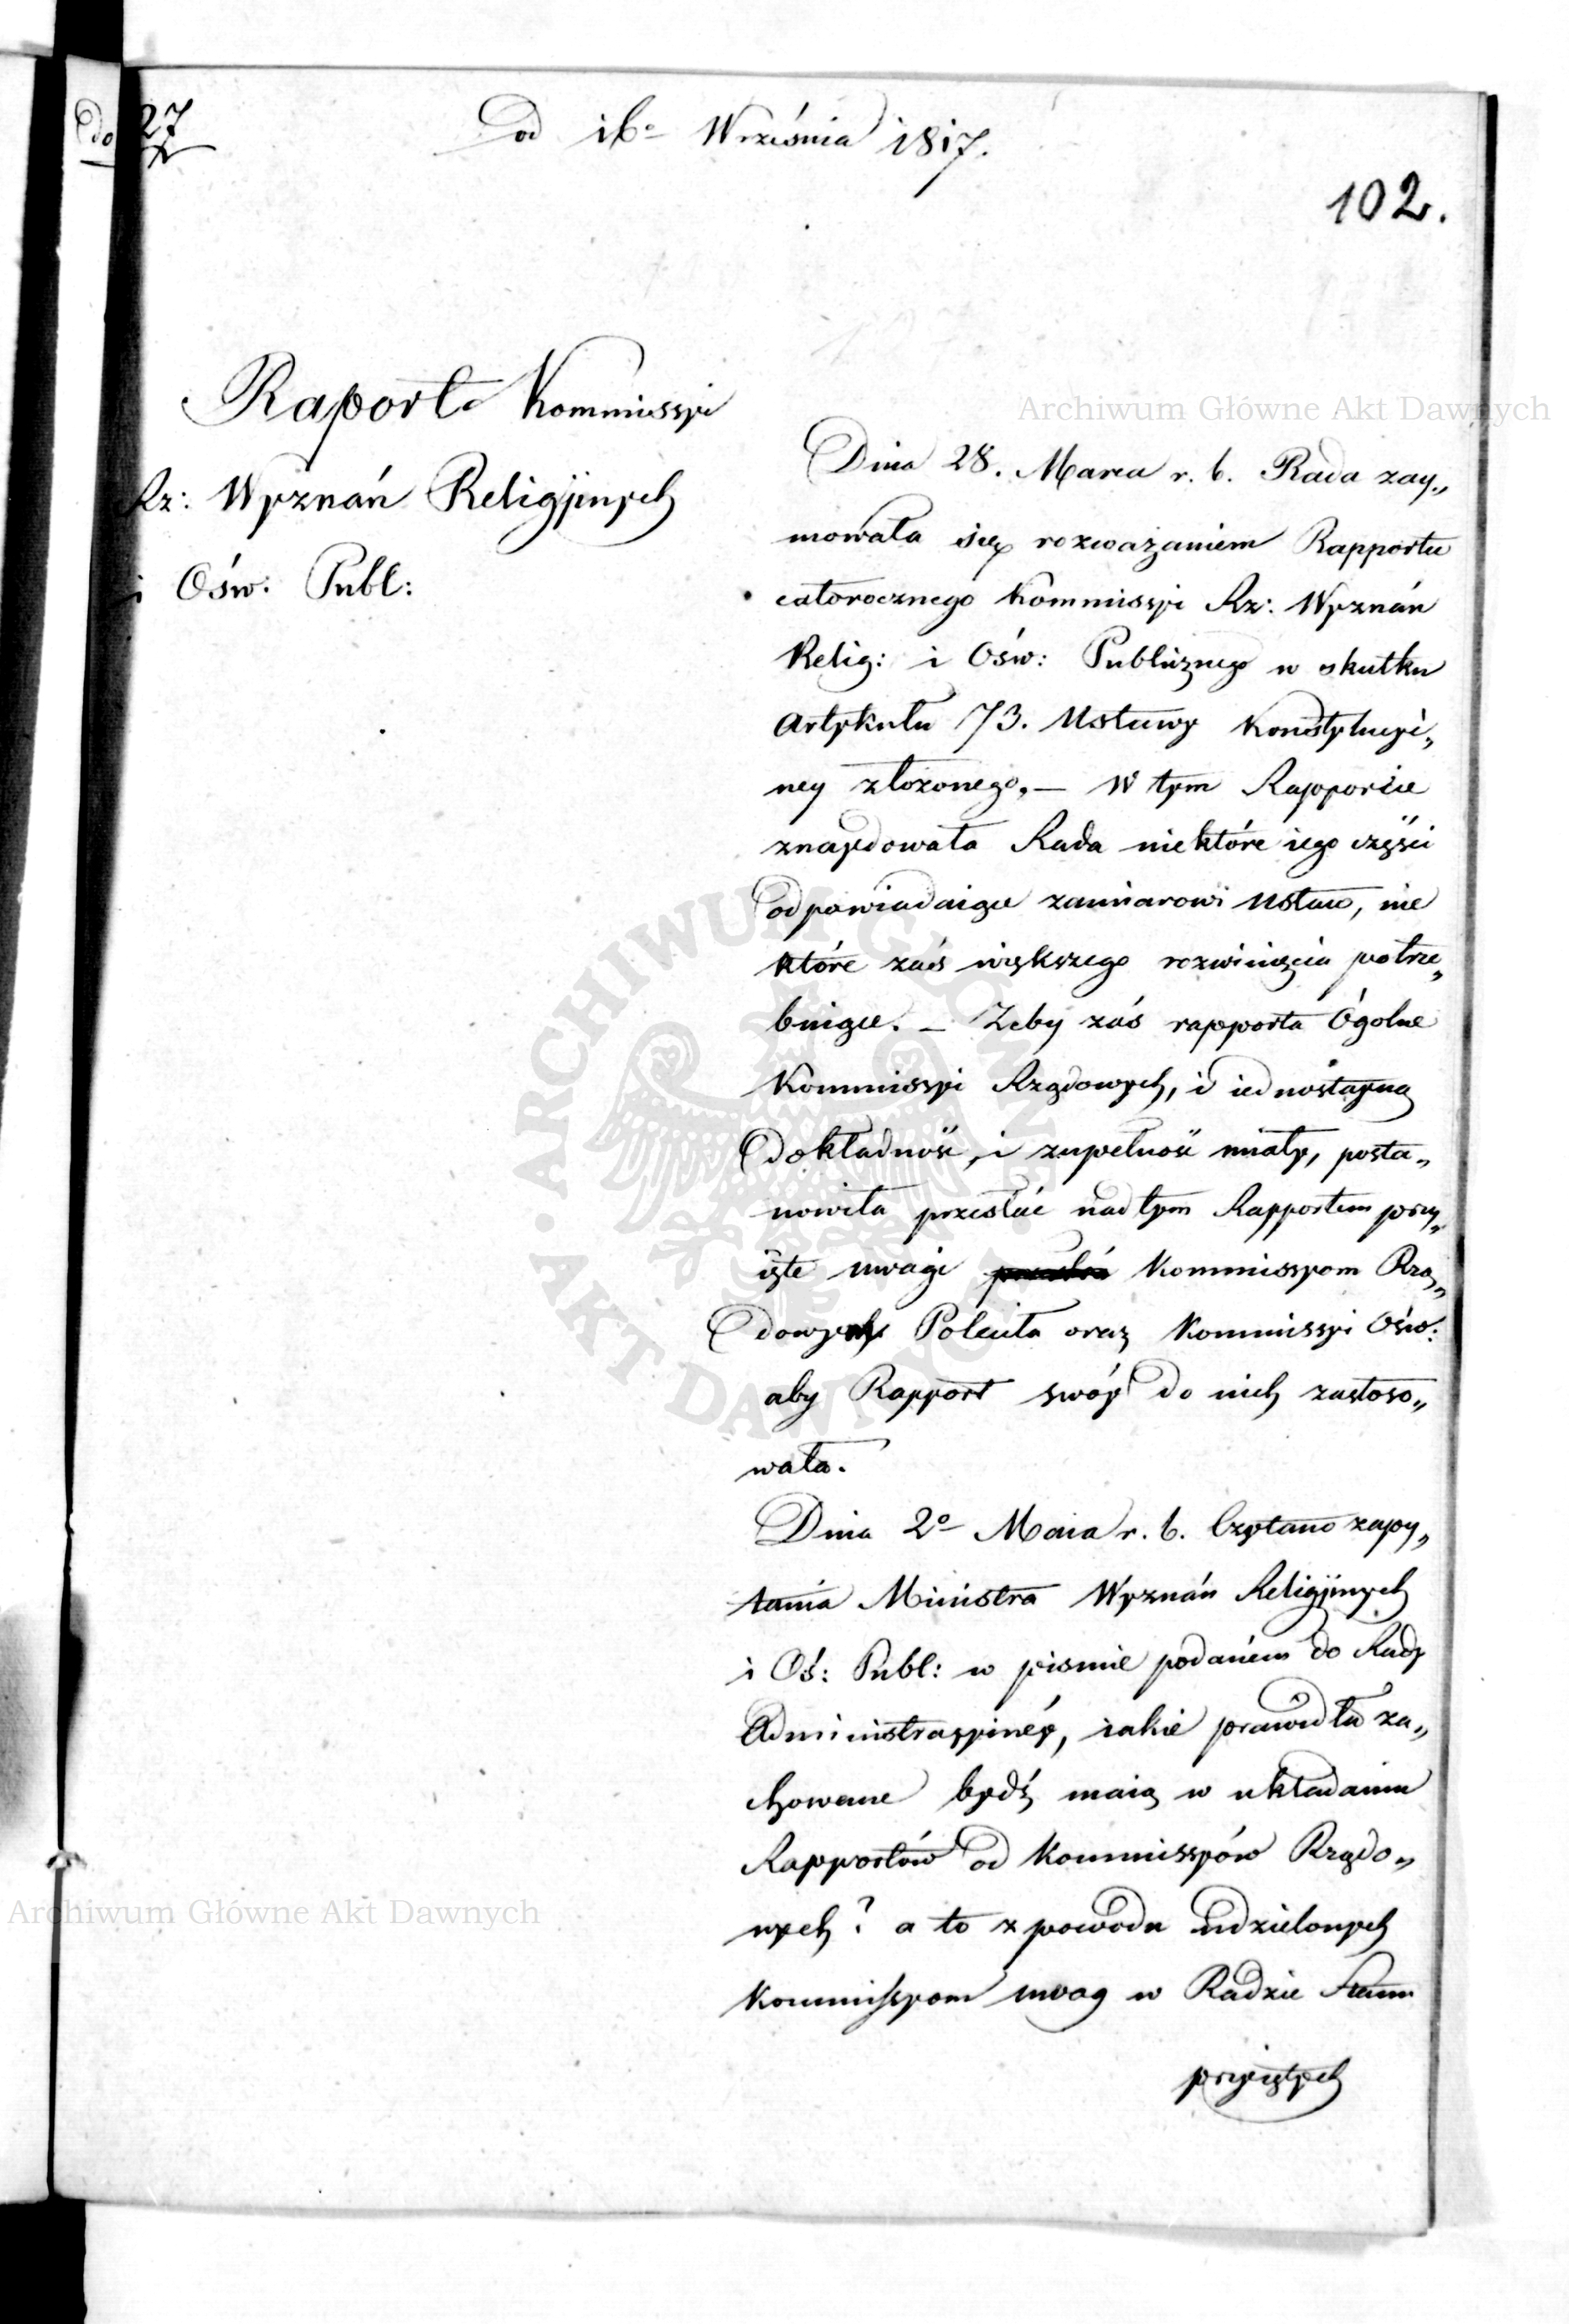 do 27
Od 16º Września 1817.
102.
Raport Kommissyi
Rz: Wyznań Religijnych
i Ośw: Publ:
Archiwum Główne Akt Dawnych
Dnia 28. Marca r. b. Rada zay„
mowała się rozważaniem Rapportu
całorocznego Kommissyi Rz: Wyznań
Relig: i Ośw: Publicznego w skutku
Artykułu 73. Ustawy Konstytucyi„
ney złożonego. — W tym Rapporcie
znaydowała Rada niektóre iego części
odpowiadaiące zamiarowi Ustaw, nie
które zaś większego rozwinięcia potrze„
buiące. — Żeby zaś rapporta Ogólne
Kommissyi Rządowych, i iednostayną
dokładność, i zupełność miały, posta„
nowiła przesłać nad tym Rapportem przy„
ięte uwagi Kommissyom Rzą„
dowym Poleciła oraz Kommissyi Ośw:
aby Rapport swóy do nich zastoso„
wała.
Dnia 2º Maia r. b. Czytano zapy„
tania Ministra Wyznań Religijnych
i Oś: Publ: w pismie podanem do Rady
Administracyinéy, iakie prawidła za„
chowane bydź maią w układaniu
Rapportów od Kommissyów Rządo„
wych? a to z powodu udzielonych
Kommissyom uwag w Radzie Stanu
przyiętych
ARCHIWUM GŁÓWNE
AKT DAWNYCH
Archiwum Główne Akt Dawnych